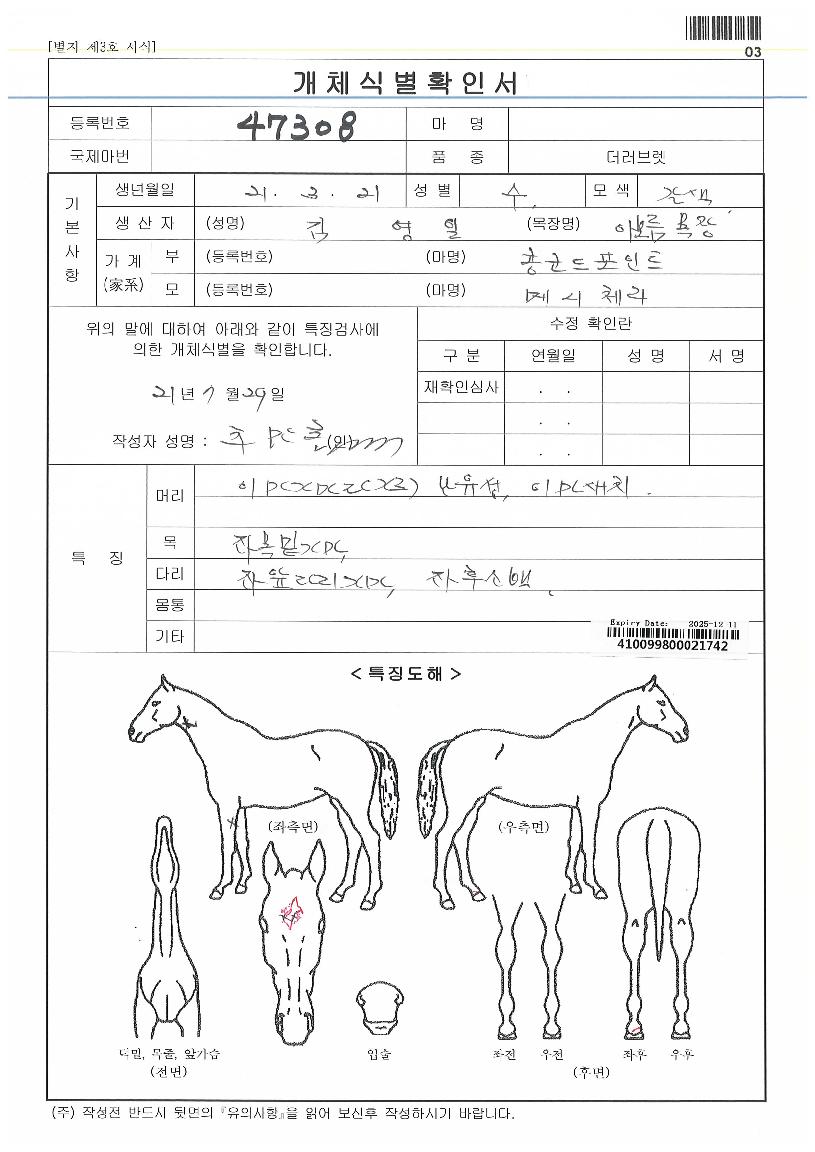 [별지 제3호 서식]
03
개체식별확인서
등록번호 47308 마 명
국제마번 품 종 더러브렛
기본사항
생년월일 21. 3. 21 성 별 수 모 색 갈색
생 산 자 (성명) 김 영 일 (목장명) 아름목장
가 계 (家系) 부 (등록번호) (마명)
모 (등록번호) (마명)
위의 말에 대하여 아래와 같이 특징검사에
의한 개체식별을 확인합니다.
21년 7월 29일
작성자 성명 : (인)
수정 확인란
구 분 연월일 성 명 서 명
재확인심사 . .
. .
. .
특 징
머리
목
다리
몸통
기타
Expiry Date: 2025-12-11
410099800021742
< 특징도해 >
(좌측면) (우측면)
턱밑, 목줄, 앞가슴 입술 좌전 우전 좌후 우후
(전면) (후면)
(주) 작성전 반드시 뒷면의 『유의사항』을 읽어 보신후 작성하시기 바랍니다.